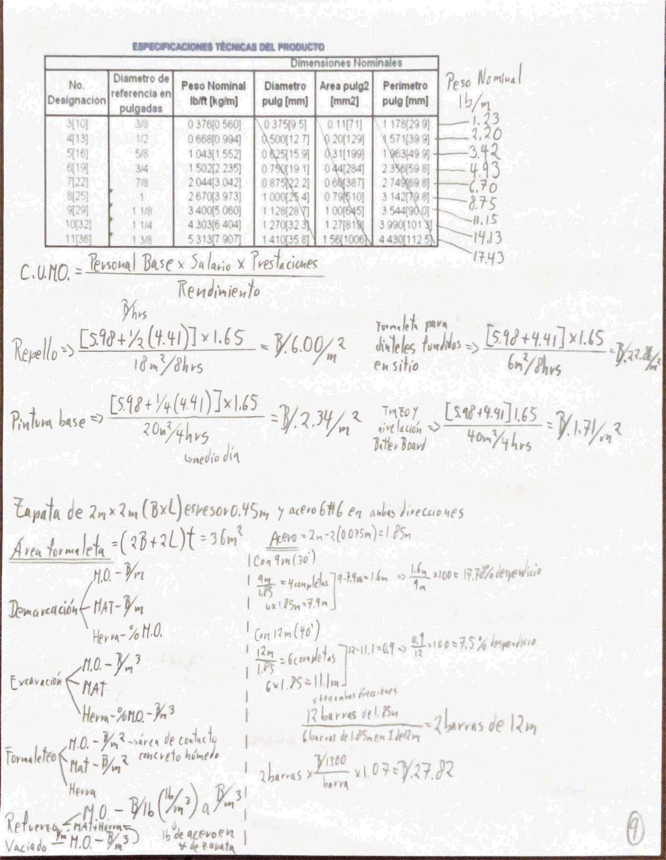 ESPECIFICACIONES TÉCNICAS DEL PRODUCTO
Dimensiones Nominales
No. Designacion | Diametro de referencia en pulgadas | Peso Nominal lb/ft [kg/m] | Diametro pulg [mm] | Area pulg2 [mm2] | Perimetro pulg [mm] | Peso Nominal lb/m
3[10] 3/8 0.376[0.560] 0.375[9.5] 0.11[71] 1.178[29.9] 1.23
4[13] 1/2 0.668[0.994] 0.500[12.7] 0.20[129] 1.571[39.9] 2.20
5[16] 5/8 1.043[1.552] 0.625[15.9] 0.31[199] 1.963[49.9] 3.42
6[19] 3/4 1.502[2.235] 0.750[19.1] 0.44[284] 2.356[59.8] 4.93
7[22] 7/8 2.044[3.042] 0.875[22.2] 0.60[387] 2.749[69.8] 6.70
8[25] 1 2.670[3.973] 1.000[25.4] 0.79[510] 3.142[79.8] 8.75
9[29] 1 1/8 3.400[5.060] 1.128[28.7] 1.00[645] 3.544[90.0] 11.15
10[32] 1 1/4 4.303[6.404] 1.270[32.3] 1.27[819] 3.990[101.3] 14.13
11[36] 1 3/8 5.313[7.907] 1.410[35.8] 1.56[1006] 4.430[112.5] 17.43
C.U.M.O. = Personal Base x Salario x Prestaciones / Rendimiento
B/hrs
Repello => [5.98 + 1/2 (4.41)] x 1.65 / 18m²/8hrs = B/6.00/m²
Formaleta para dinteles fundidos en sitio => [5.98 + 4.41] x 1.65 / 6m²/8hrs =
Pintura base => [5.98 + 1/4 (4.41)] x 1.65 / 20m²/4hrs = B/.2.34/m²
medio día
Trazo y nivelación Batter Board => [5.98 + 4.41] 1.65 / 40m²/4hrs = B/.1.71/m²
Zapata de 2m x 2m (B x L) espesor 0.45m y acero 6#6 en ambas direcciones
Área formaleta = (2B + 2L) t = 3.6m²
Acero = 2m - 2(0.075m) = 1.85m
Con 9m (30')
9m / 1.85 = 4 completas
4 x 1.85m = 7.4m
9 - 7.4m = 1.6m => 1.6m / 9m x 100 = 17.78% desperdicio
Con 12m (40')
12m / 1.85 = 6 completas
6 x 1.85 = 11.1m
12 - 11.1 = 0.9 => 0.9 / 12 x 100 = 7.5% desperdicio
ambas direcciones
12 barras de 1.85m / 6 barras de 1.85m en 1 de 12m = 2 barras de 12m
2 barras x B/13.00 / barra x 1.07 = B/.27.82
Demarcación
M.O. - B/m
MAT - B/m
Herra - % M.O.
Excavación
M.O. - B/m³
MAT
Herra - % M.O. - B/m³
Formaleteo
M.O. - B/m² -> área de contacto concreto húmedo
Mat - B/m²
Herra
Refuerzo
M.O. - B/lb (lb/m³) a B/m³
MAT + Herra
lb de acero en m³ de zapata
Vaciado - M.O. - B/m³
9